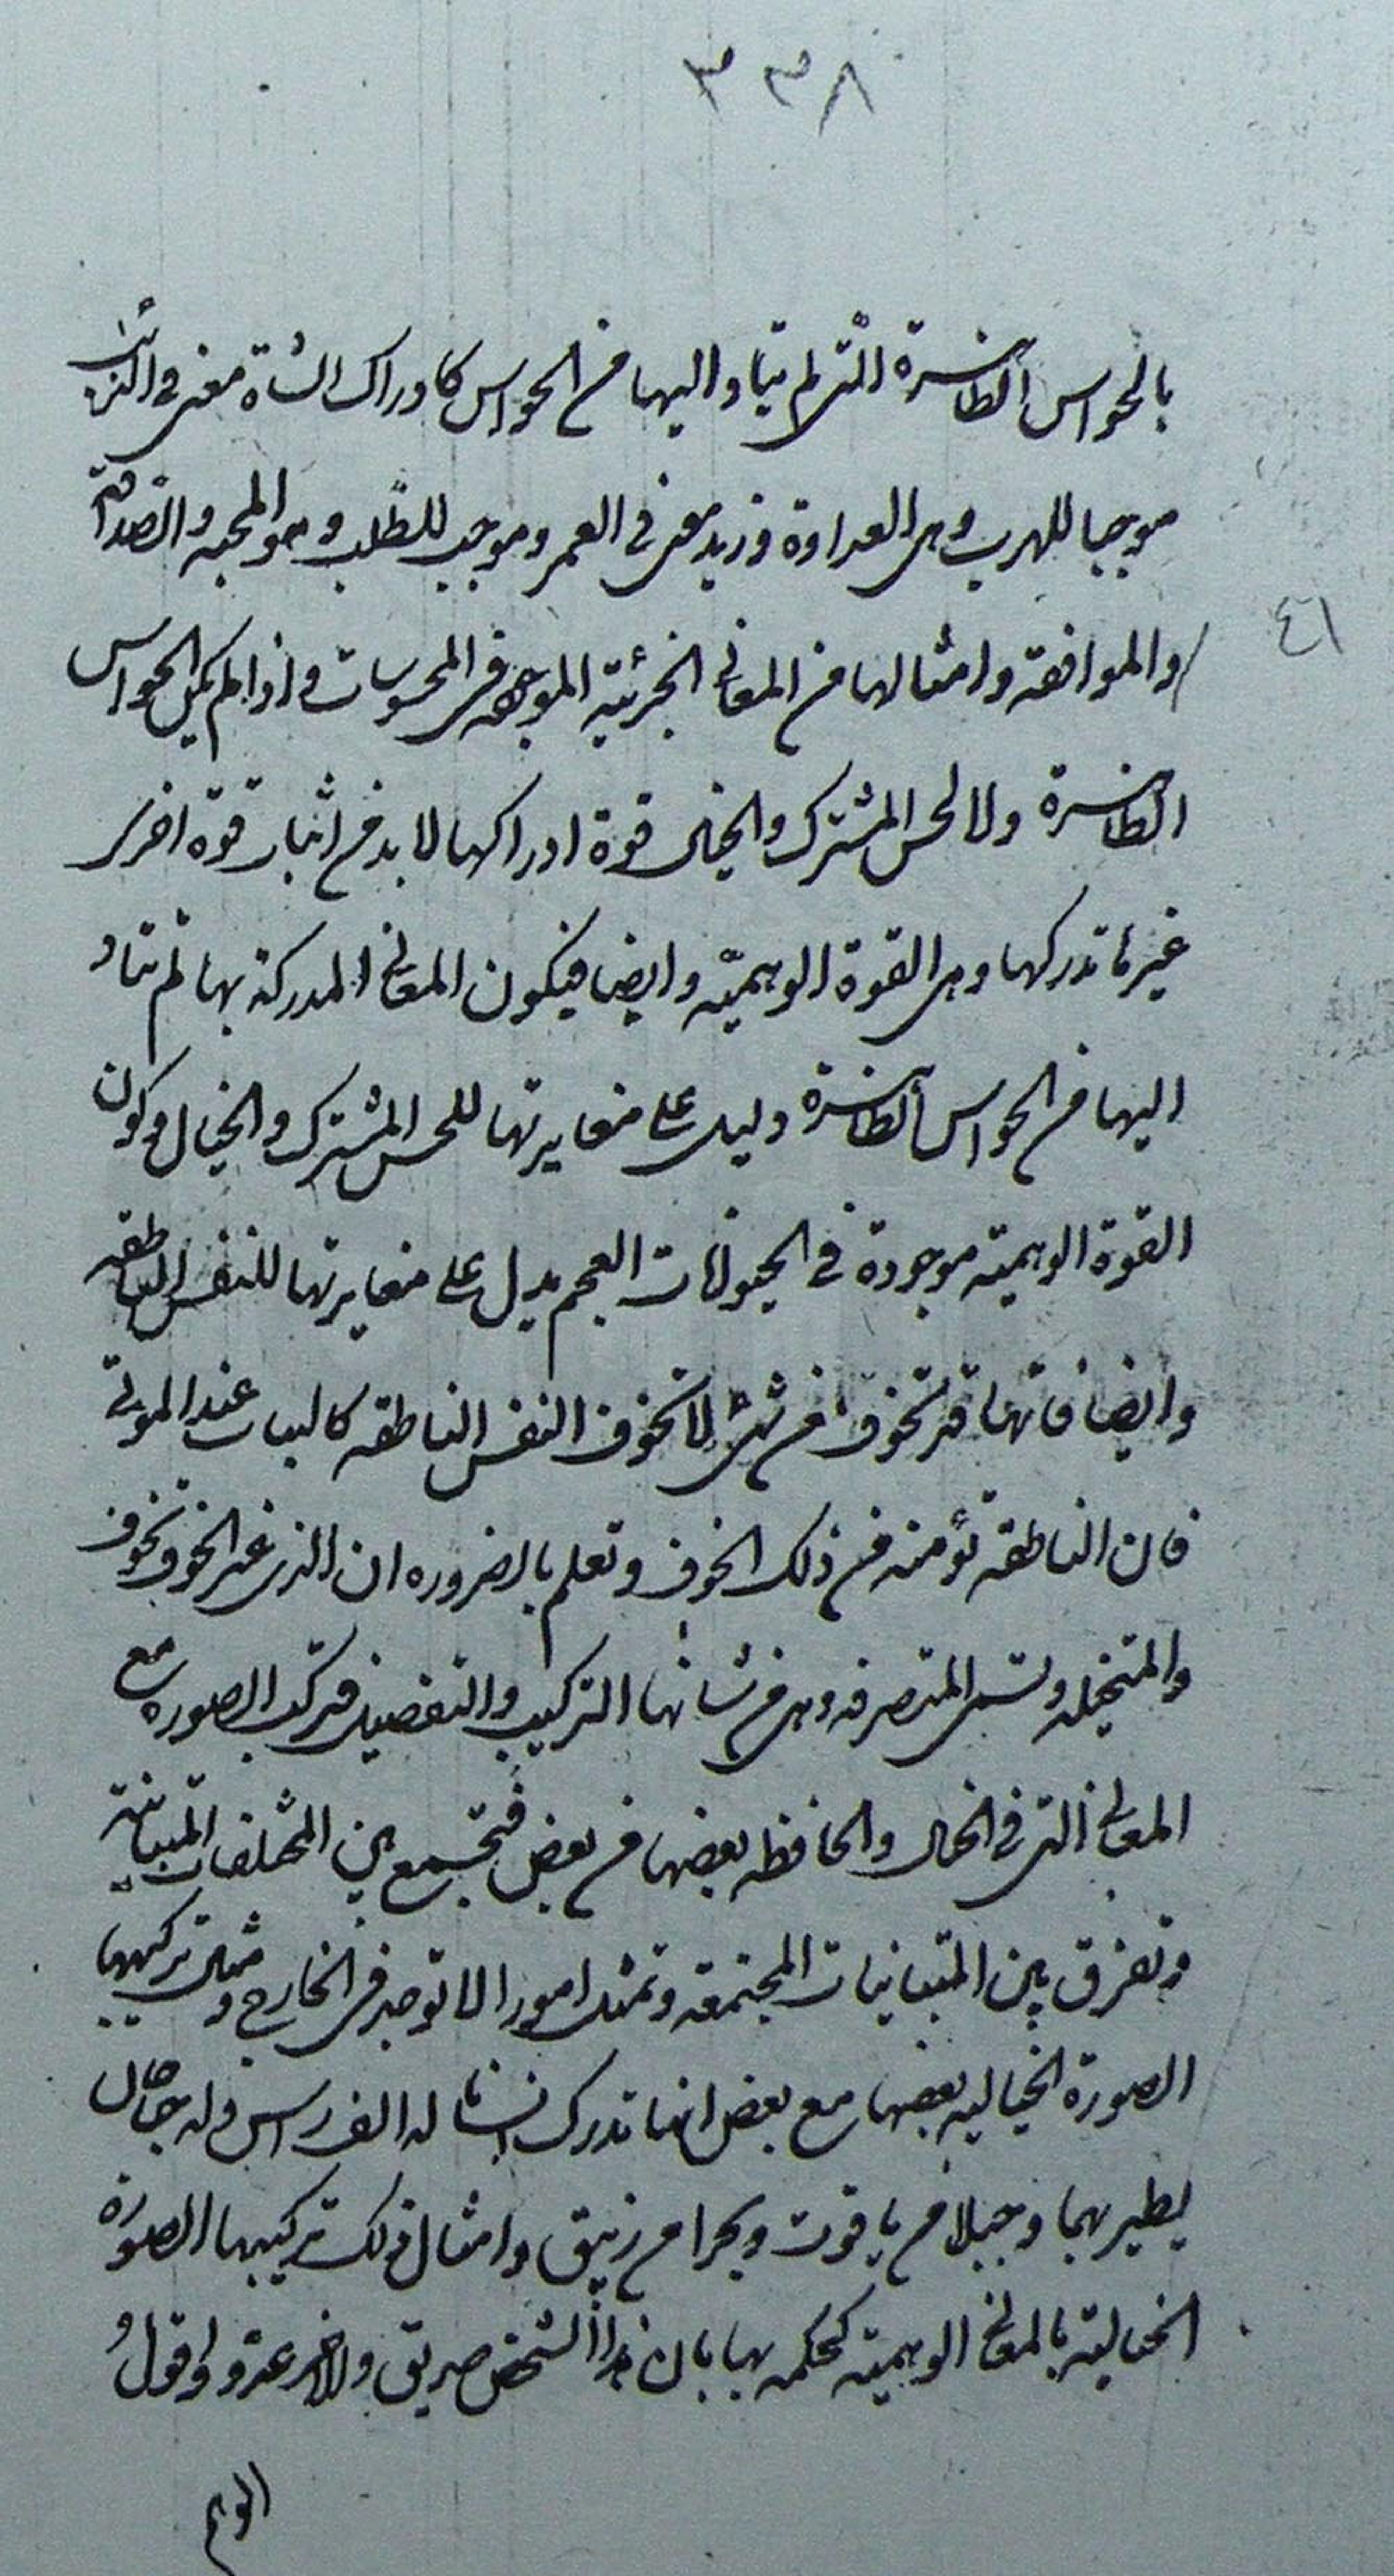 ٣٣٨
بالحواس الظاهرة التى لم يتاد اليها من الحواس كادراك الشاة معنى فى الذئب
موجبا للهرب وهى العداوة وزيد معنى فى العمرو موجب للطلب وهو المحبه والصداقة
٤٦
والموافقة وامثالها من المعانى الجزئية الموجوده فى المحسوسات واذا لم يكن الحواس
الظاهرة ولا الحس المشترك والخيال قوة ادراكها لا بد من اثبات قوة اخرى
غيرها تدركها وهى القوة الوهمية وايضا فيكون المعانى المدركة بها لم تتاد
اليها من الحواس الظاهرة دليل على مغايرتها للحس المشترك والخيال وكون
القوة الوهمية موجودة فى الحيوانات العجم يدل على مغايرتها للنفس الناطقه
وايضا فانها قد تخوف من شىء لا تخوف النفس الناطقه كالبيات عند الموتى
فان الناطقة تؤمنه من ذلك الخوف وتعلم بالضروره ان الذى غير الخوف تخوف
والمتخيله وتسمى المتصرفه وهى من شانها التركيب والتفصيل فتركب الصوره مع
المعانى التى فى الخيال والحافظه بعضها من بعض فتجمع بين المختلفات المتباينة
وتفرق بين المتباينات المجتمعة وتمثل امورا لا توجد فى الخارج ومثل تركيبها
الصورة الخياليه بعضها مع بعض انها تدرك انسانا له الف راس وله جناحان
يطير بهما وجبلا من ياقوت وبحرا من زيبق وامثال ذلك تركيبها الصورة
الخيالية بالمعانى الوهمية كحكمه بها بان هذا الشخص صديق والاخر عدو واقول
الوهم